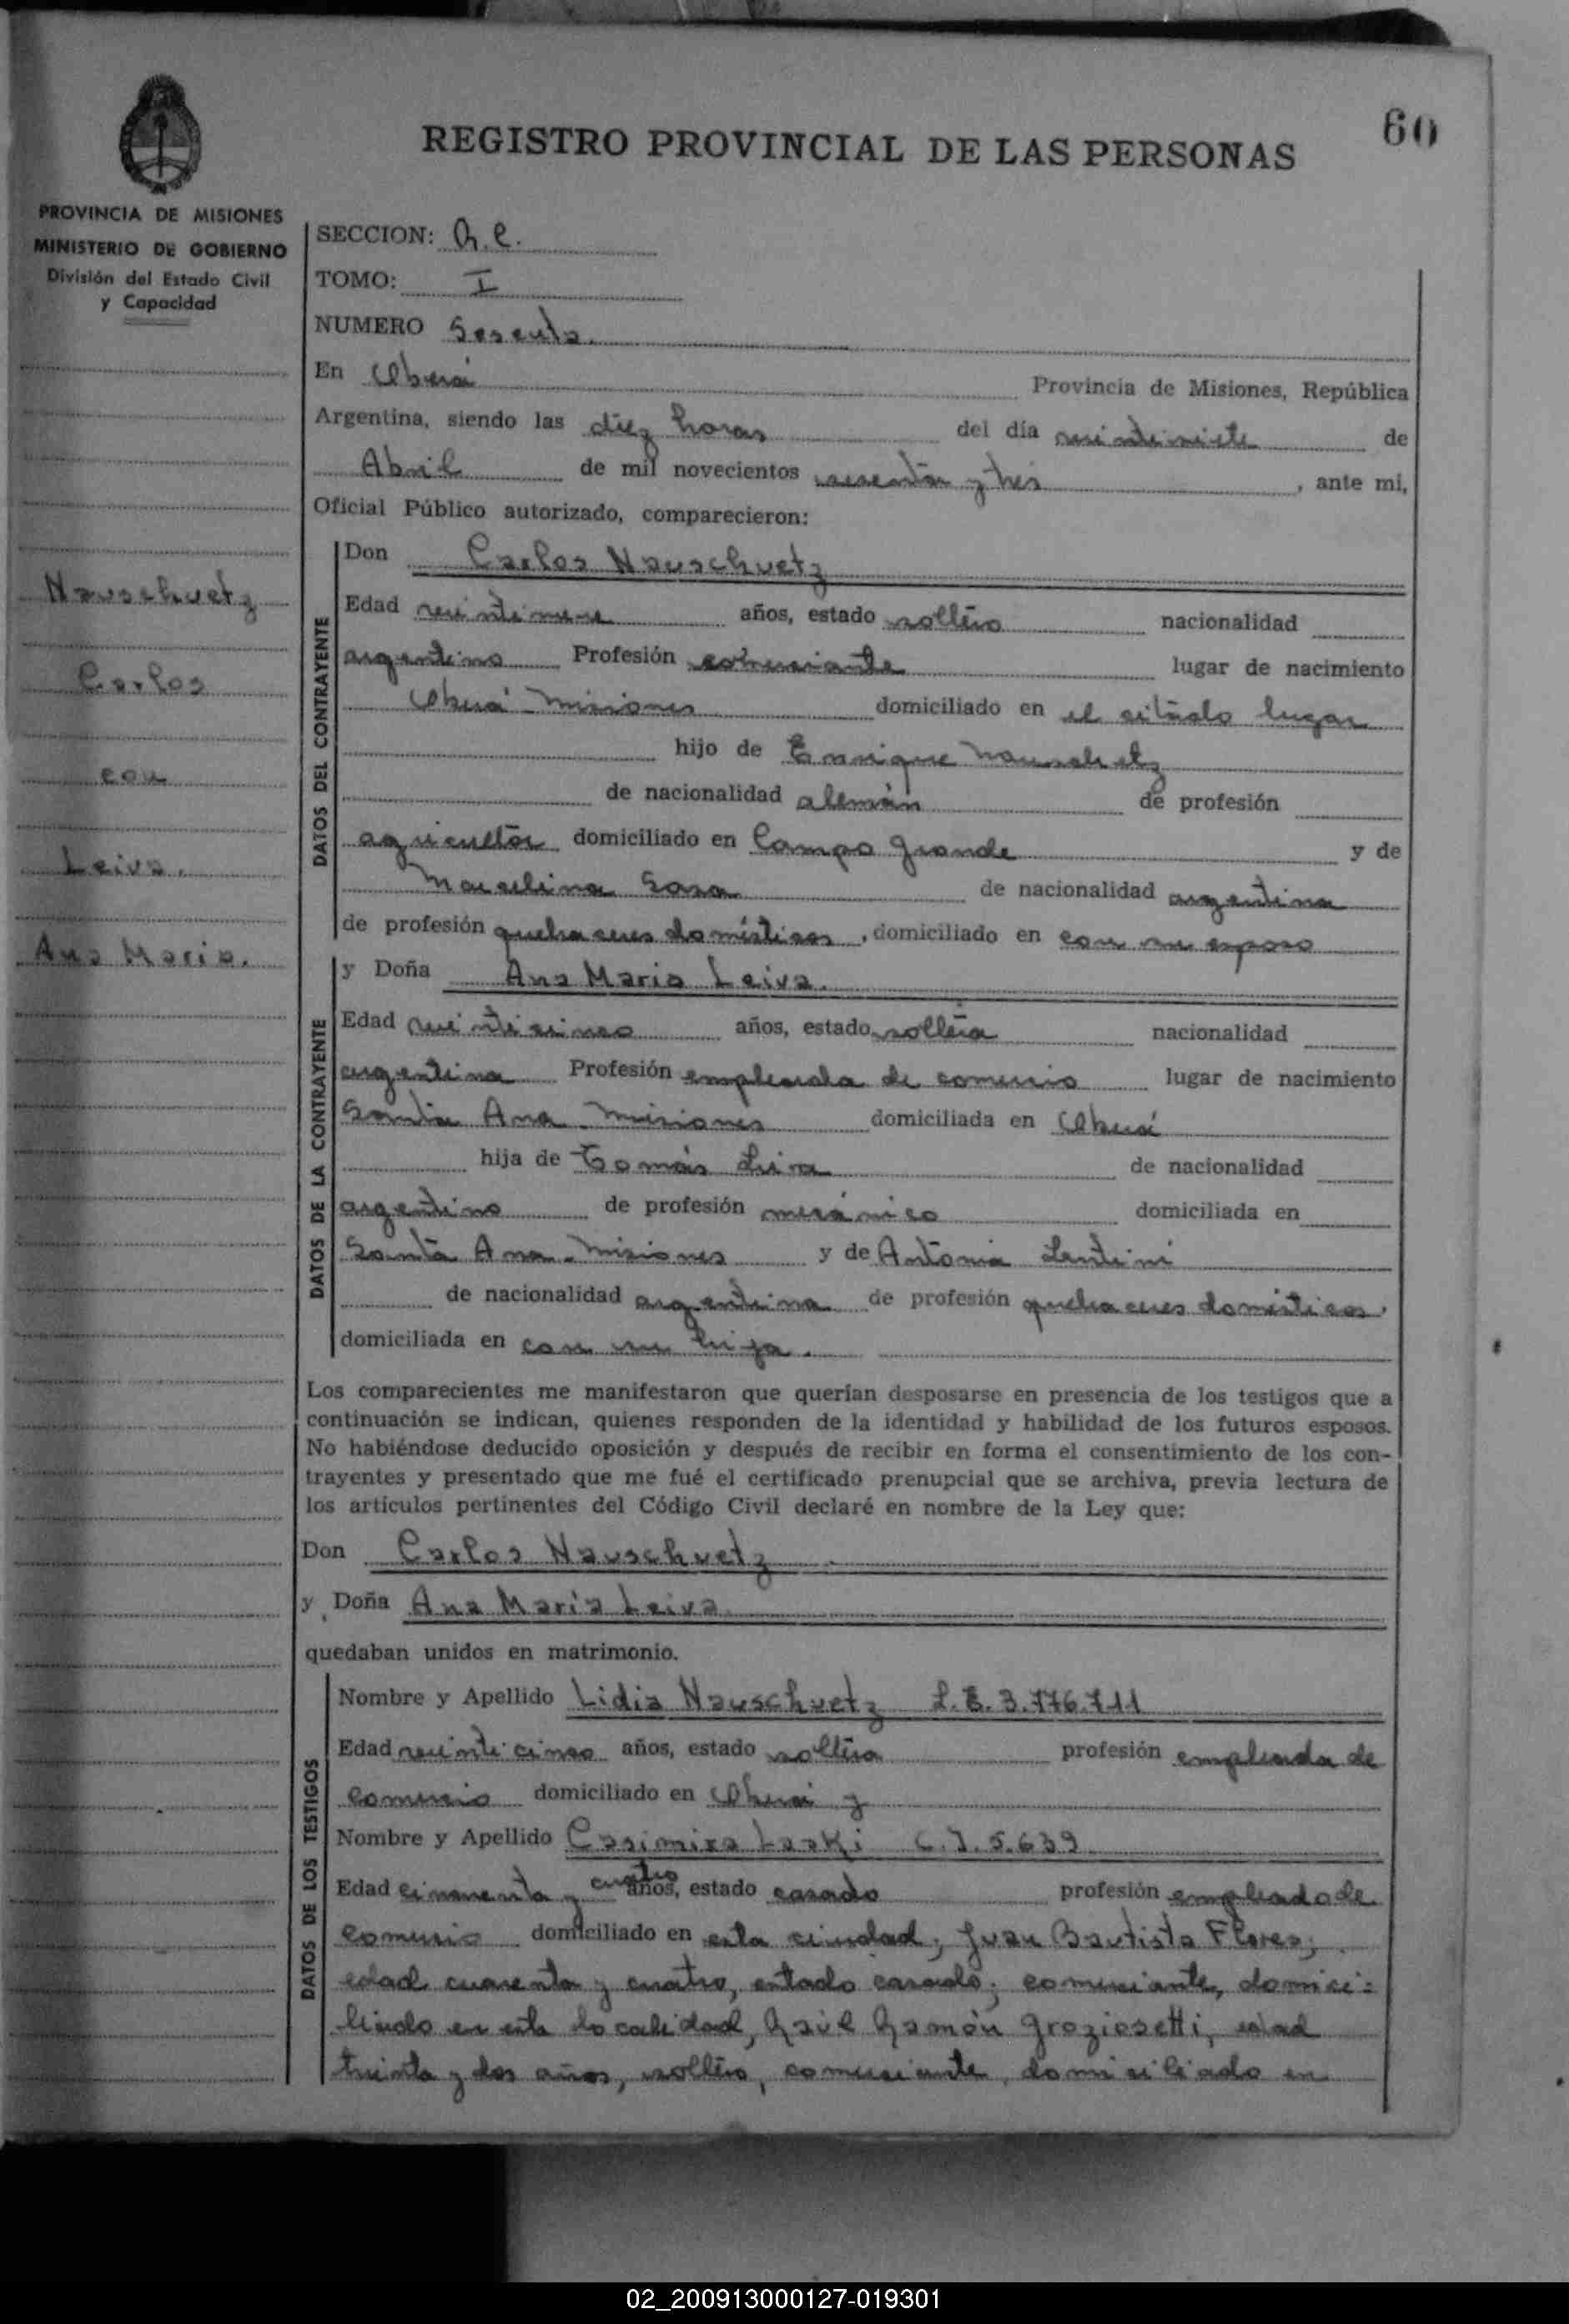 60
REGISTRO PROVINCIAL DE LAS PERSONAS
PROVINCIA DE MISIONES
MINISTERIO DE GOBIERNO
División del Estado Civil
y Capacidad
Nauschuetz
Carlos
con
Leiva.
Ana Maria.
SECCION: R.C.
TOMO: I
NUMERO Sesenta.
En Oberá Provincia de Misiones, República
Argentina, siendo las diez horas del día veintisiete de
Abril de mil novecientos sesenta y tres, ante mi,
Oficial Público autorizado, comparecieron:
DATOS DEL CONTRAYENTE
Don Carlos Nauschuetz
Edad veintinueve años, estado soltero nacionalidad
argentino Profesión comerciante lugar de nacimiento
Oberá - Misiones domiciliado en el citado lugar
hijo de Enrique Nauschuetz
de nacionalidad alemán de profesión
agricultor domiciliado en Campo Grande y de
Marcelina Sosa de nacionalidad argentina
de profesión quehaceres domésticos, domiciliado en con su esposo
DATOS DE LA CONTRAYENTE
y Doña Ana Maria Leiva.
Edad veinticinco años, estado soltera nacionalidad
argentina Profesión empleada de comercio lugar de nacimiento
Santa Ana - Misiones domiciliada en Oberá
hija de Tomás Leiva de nacionalidad
argentino de profesión mecánico domiciliada en
Santa Ana - Misiones y de Antonia Lentini
de nacionalidad argentina de profesión quehaceres domésticos.
domiciliada en con su hija.
Los comparecientes me manifestaron que querían desposarse en presencia de los testigos que a
continuación se indican, quienes responden de la identidad y habilidad de los futuros esposos.
No habiéndose deducido oposición y después de recibir en forma el consentimiento de los con-
trayentes y presentado que me fué el certificado prenupcial que se archiva, previa lectura de
los artículos pertinentes del Código Civil declaré en nombre de la Ley que:
Don Carlos Nauschuetz
y Doña Ana Maria Leiva
quedaban unidos en matrimonio.
DATOS DE LOS TESTIGOS
Nombre y Apellido Lidia Nauschuetz L.C. 3.776.711
Edad veinticinco años, estado soltera profesión empleada de
comercio domiciliado en Oberá y
Nombre y Apellido Casimiro Laski C.I. 5.639
Edad cincuenta y cuatro años, estado casado profesión empleado de
comercio domiciliado en esta ciudad; Juan Bautista Flores;
edad cuarenta y cuatro, estado casado; comerciante, domici-
liado en esta localidad, Raúl Ramón Graziosetti, edad
treinta y dos años, soltero, comerciante, domiciliado en
02_200913000127-019301